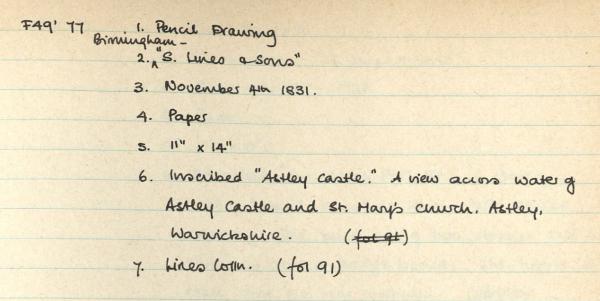 F49' 77 1. Pencil Drawing
Birmingham -
2. "S. Lines & Sons"
3. November 4th 1831.
4. Paper
5. 11" x 14"
6. Inscribed "Astley Castle." A view across water of
Astley Castle and St. Mary's Church, Astley,
Warwickshire. (fol 91)
7. Lines Colln. (fol 91)